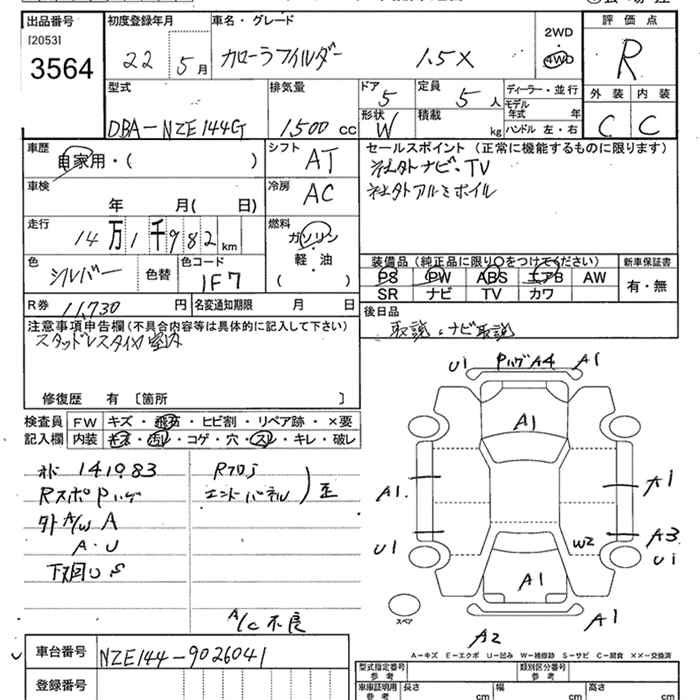 出品番号
[2053]
3564
初度登録年月
22 5月
車名・グレード
カローラフィルダー 1.5X
2WD
4WD
評価点
R
外装 内装
C C
型式
DBA-NZE144G
排気量
1500 cc
ドア
5
定員
5 人
形状
W
積載
kg
ディーラー・並行
モデル
年式 年
ハンドル 左・右
車歴
自家用・( )
シフト
AT
セールスポイント (正常に機能するものに限ります)
社外ナビ・TV
社外アルミホイル
車検
年 月( 日)
冷房
AC
走行
14万1千982km
燃料
ガソリン
・
軽・油
( )
色
シルバー
色替
色コード
1F7
装備品 (純正品に限り○をつけてください)
PS PW ABS エアB AW
SR ナビ TV カワ
新車保証書
有・無
R券 11,730 円
名変通知期限 月 日
後日品
取説、ナビ取説
注意事項申告欄(不具合内容等は具体的に記入して下さい)
スタッドレスタイヤ室内
修復歴 有 〔箇所 〕
検査員
記入欄
FW キズ・飛石・ヒビ割・リペア跡・×要
内装 キズ・汚レ・コゲ・穴・スレ・キレ・破レ
オド 141983
RスポPハゲ
外A/W A
A・U
下回U S
Rフロア
エンドパネル
歪
A/C不良
U1 PハゲA4 A1
A1
A1. A1
U1 W2 A3
U1
A1
A2 A1
スペア
A-キズ E-エクボ U-凹み W-補修跡 S-サビ C-腐食 ××-交換済
車台番号
NZE144-9026041
登録番号
型式指定番号
参考
類別区分番号
参考
車庫証明用
参考
長さ cm
幅 cm
高さ cm